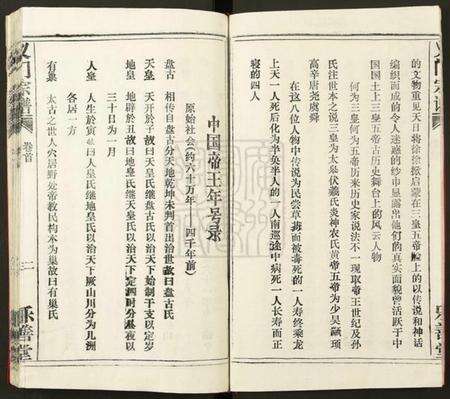 的文物重见天日将徐徐掀启蒙在三皇五帝脸上的以传说和神话
编织而成的令人迷惑的纱巾显露出他们的真实面貌曾活跃于中
国国土上三皇五帝古历史舞台上的风云人物
何为三皇何为五帝历来历史家说法不一现取帝王世纪及孙
氏注世本之说三皇为太皋伏羲氏炎神农氏黄帝五帝为少吴颛顼
高辛唐尧虞舜
在这八位人物中传说为民尝草药而被毒死的一人寿终乘龙
上天一人死后化为半鱼半人的一人南巡途中病死一人长寿而正
寝的四人
乐善堂
义门宗谱
卷首
中国帝王年号录
原始社会(约六十万年—四千年前)
盘古 相传自盘古分天地乾坤未判首出治世故曰盘古氏
天皇 天开於子故曰天皇氏继盘古氏以治天下始制干支以定岁
地皇 地辟於丑故曰地皇氏继天皇氏以治天下定四时分昼夜以
三十日为一月
人皇 人生於寅故曰人皇氏继地皇氏以治天下厥山川分为九洲
各居一方
有巢 太古之世人穴居野处帝教民构木为巢故曰有巢氏
乐善堂